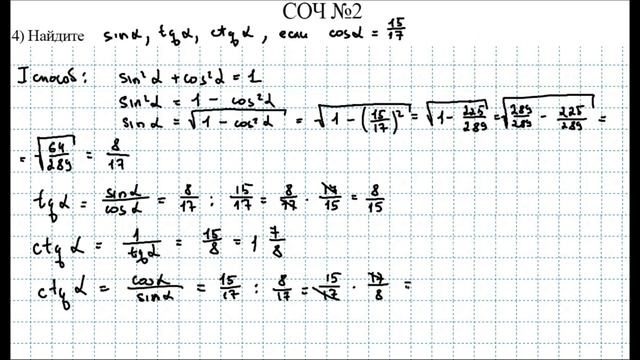 СОЧ №2
4) Найдите sinα, tgα, ctgα, если cosα = 15/17
I способ: sin²α + cos²α = 1
sin²α = 1 − cos²α
sinα = √(1 − cos²α) = √(1 − (15/17)²) = √(1 − 225/289) = √(289/289 − 225/289) =
= √(64/289) = 8/17
tgα = sinα/cosα = 8/17 : 15/17 = 8/17 · 17/15 = 8/15
ctgα = 1/tgα = 15/8 = 1 7/8
ctgα = cosα/sinα = 15/17 : 8/17 = 15/17 · 17/8 =